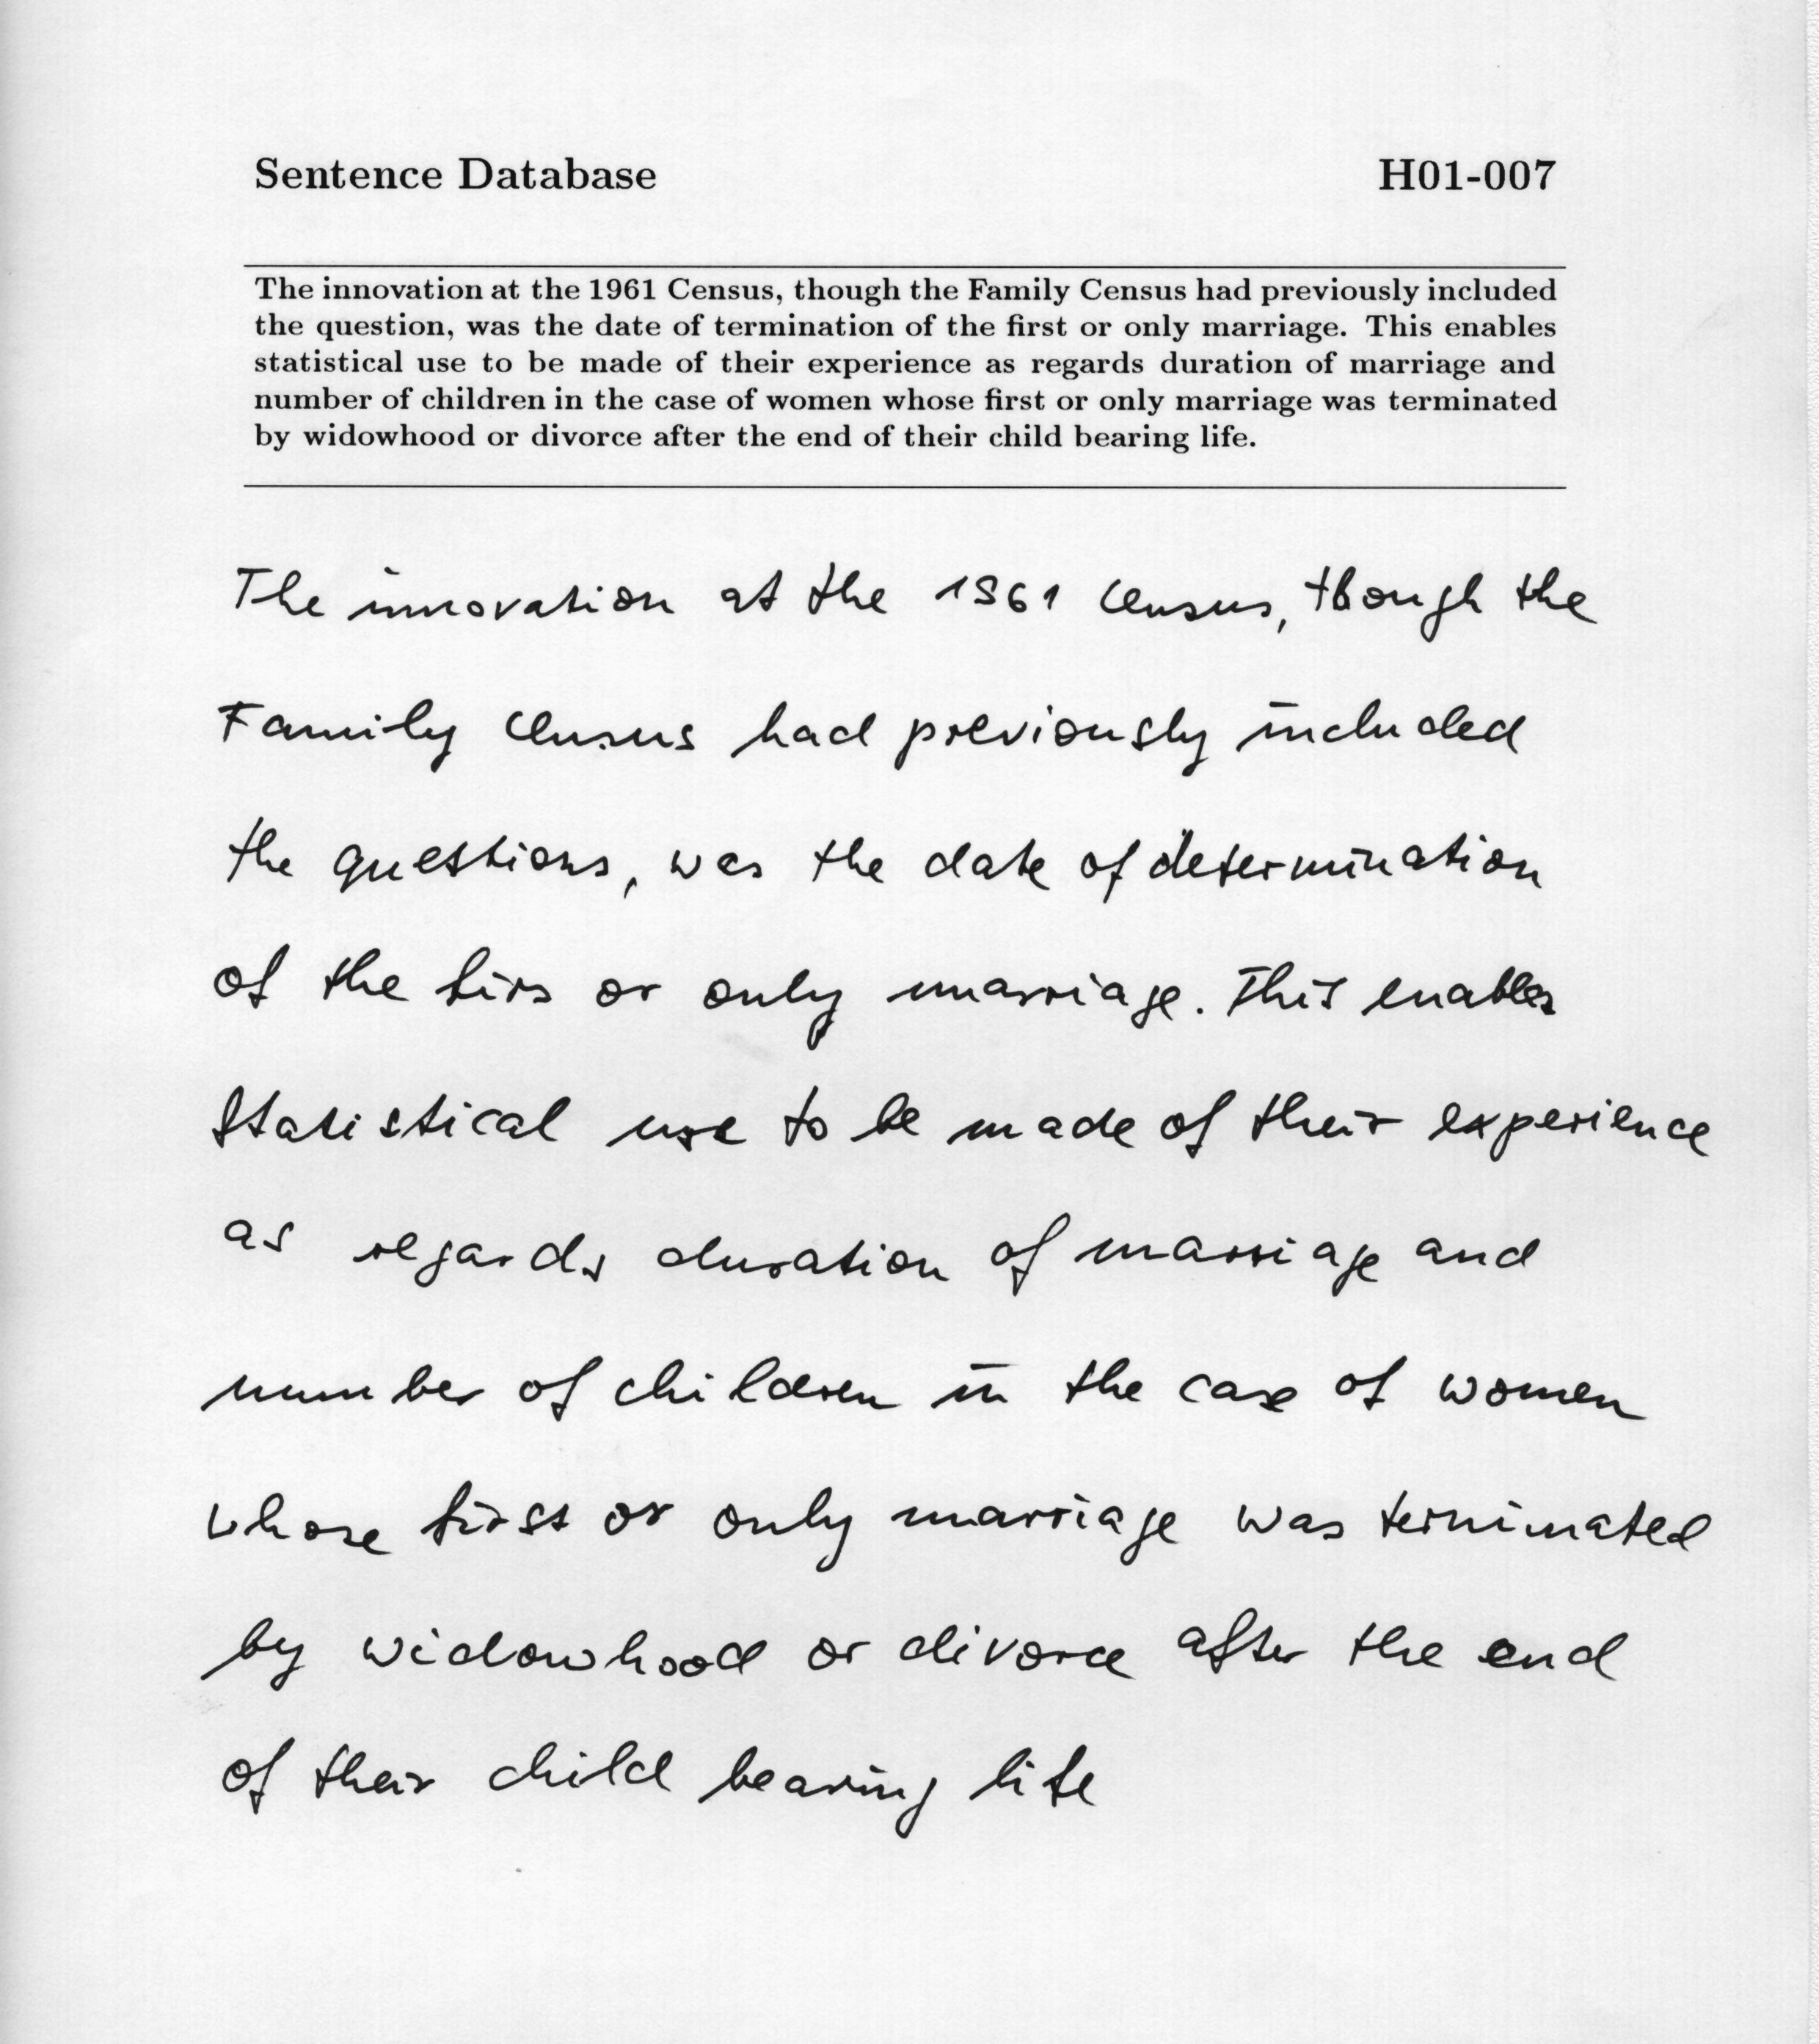 Sentence Database H01-007
The innovation at the 1961 Census, though the Family Census had previously included
the question, was the date of termination of the first or only marriage. This enables
statistical use to be made of their experience as regards duration of marriage and
number of children in the case of women whose first or only marriage was terminated
by widowhood or divorce after the end of their child bearing life.
The innovation at the 1961 Census, though the
Family Census had previously included
the questions, was the date of determination
of the firs or only marriage. This enables
statistical use to be made of their experience
as regards duration of marriage and
number of children in the case of women
whose first or only marriage was terminated
by widowhood or divorce after the end
of their child bearing life